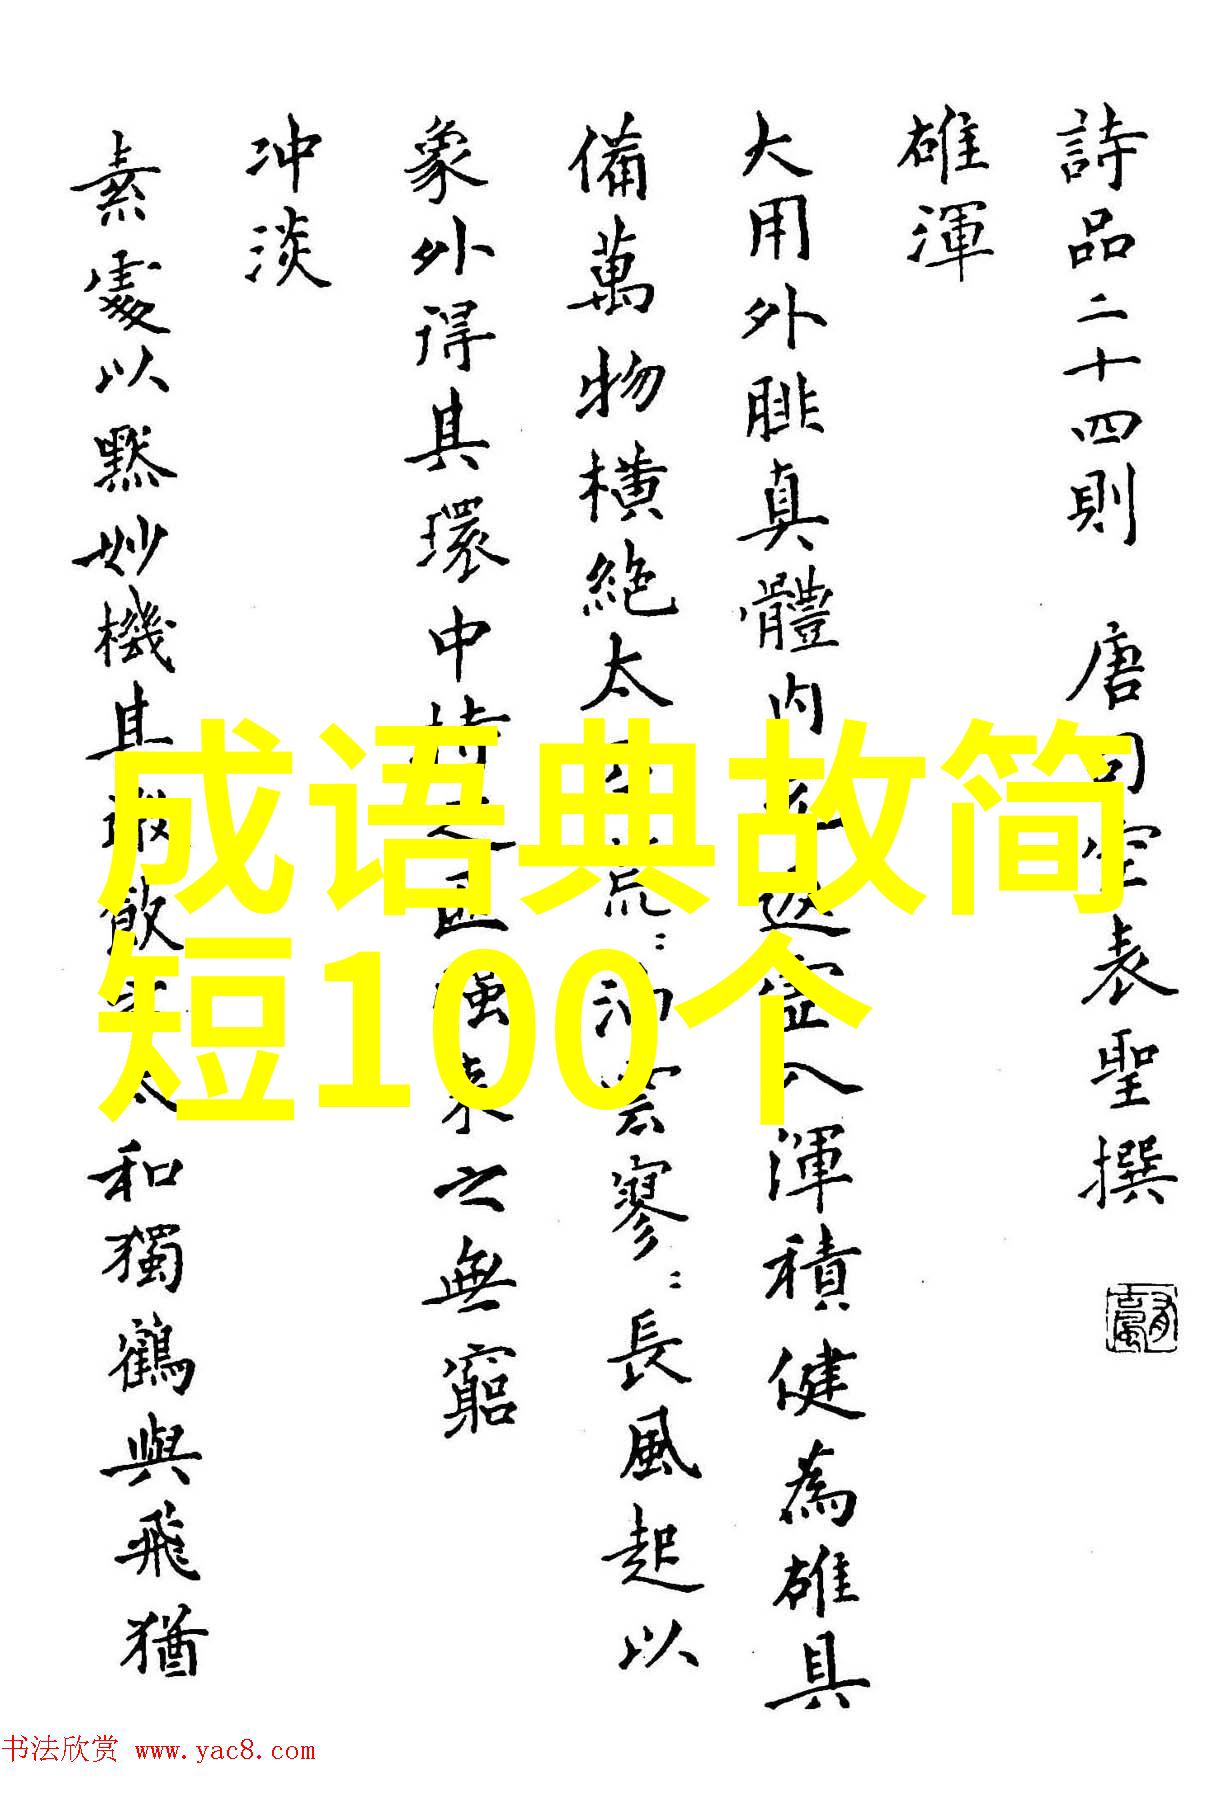 詩品二十四則 唐司空表聖撰
雄渾
大用外腓真體内返虛入渾積健為雄具
備萬物橫絶太荒：油雲寥：長風起以
象外得其環中持之匪強来之無窮
冲淡
素處以默妙機其微飲太和獨鶴與飛猶
成语典故简
短100个
书法欣赏 www.yac8.com